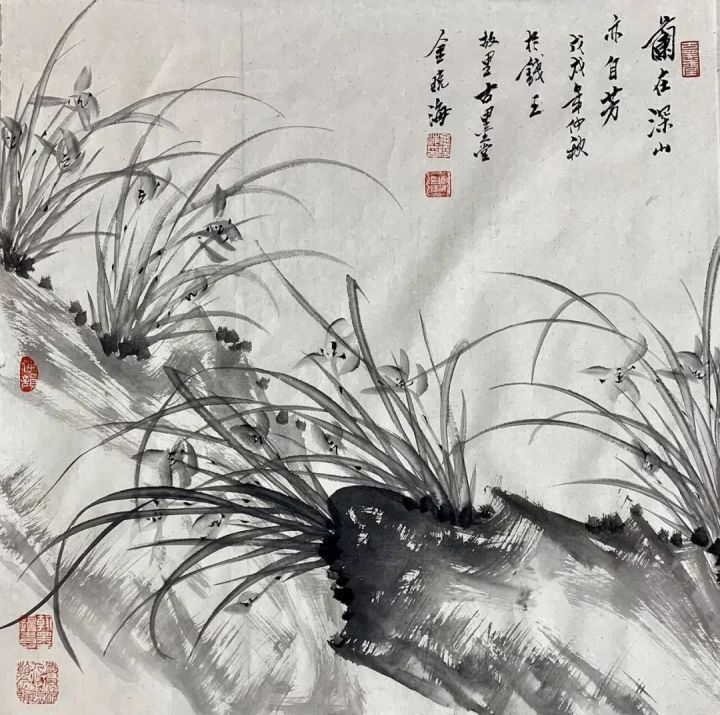 蘭在深山
亦自芳
戊戌年仲秋
於錢王
故里古墨堂
金曉海